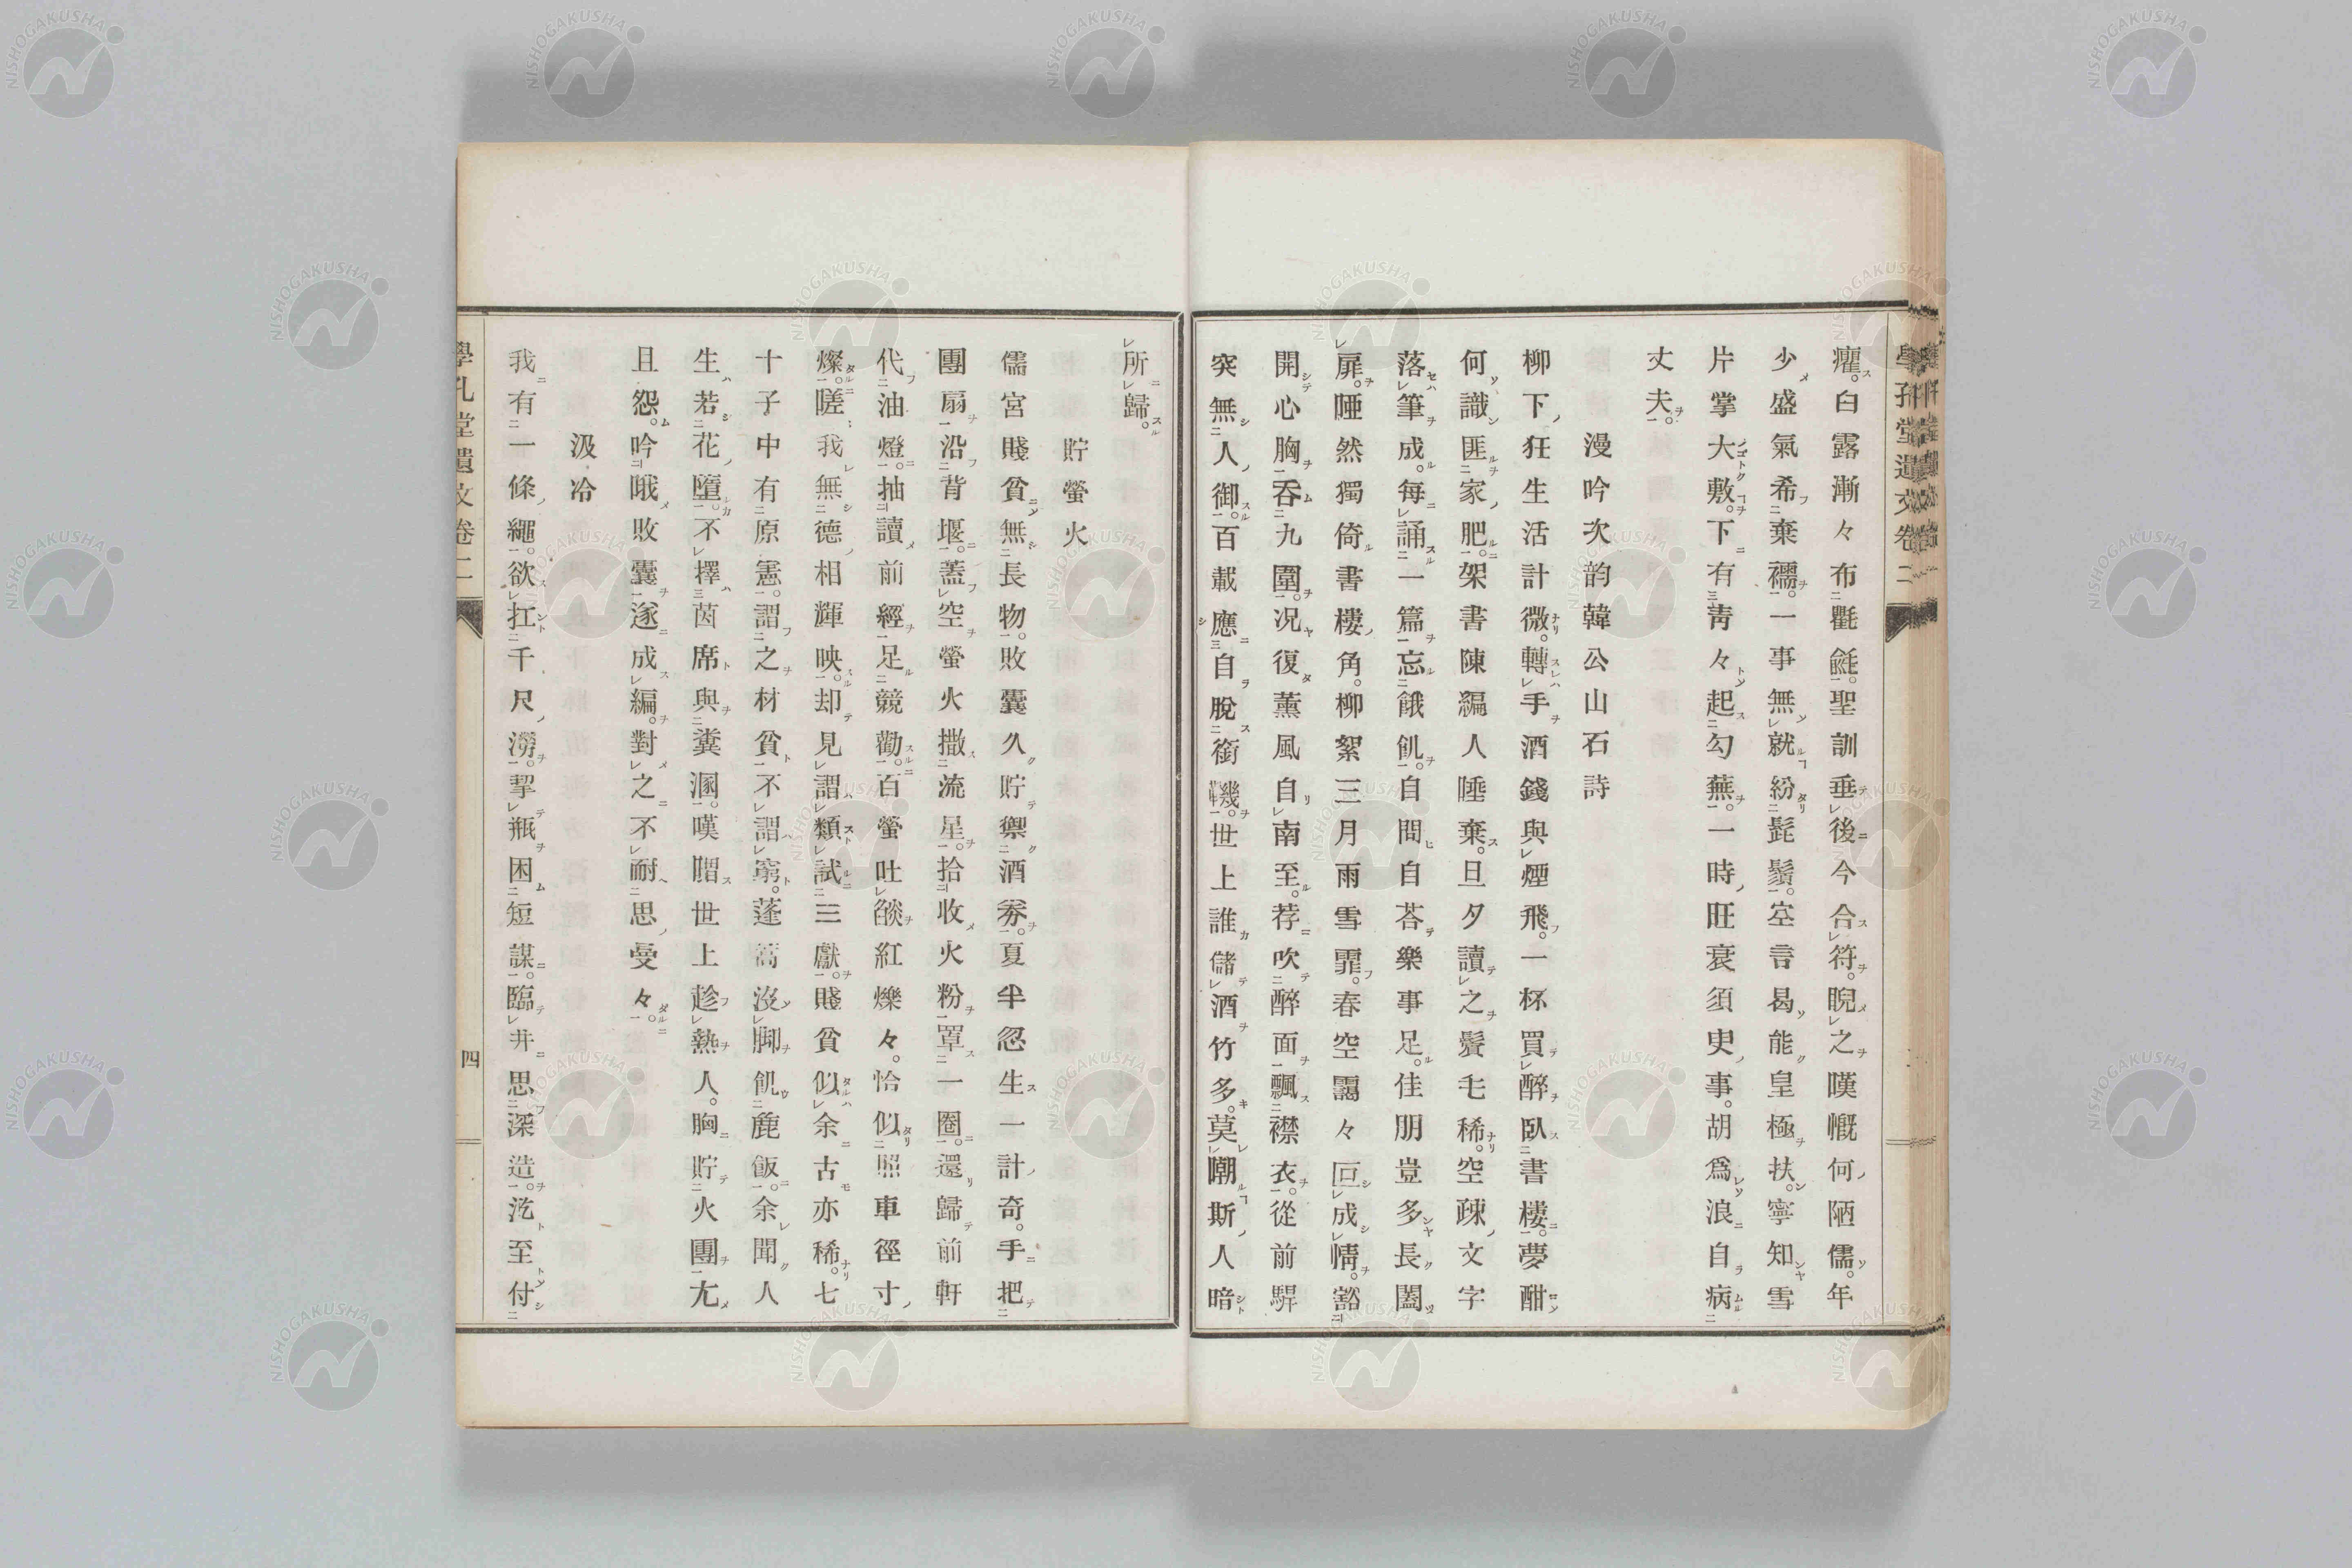 癯。白露漸々布氍毹。聖訓垂後今合符。睨之嘆慨何陋儒。年
少盛氣希棄襦。一事無就紛髭鬚。空言曷能皇極扶。寧知雪
片掌大敷。下有靑々起勾蕪。一時旺衰須臾事。胡爲浪自病
丈夫。
漫吟次韵韓公山石詩
柳下狂生活計微。轉手酒錢與煙飛。一杯買醉臥書樓。夢酣
何識匪家肥。架書陳編人唾棄。旦夕讀之鬢毛稀。空疎文字
落筆成。每誦一篇忘餓飢。自問自荅樂事足。佳朋豈多長闔
扉。陲然獨倚書樓角。柳絮三月雨雪霏。春空靄々叵成情。豁
開心胸吞九圍。况復薰風自南至。荐吹醉面飄襟衣。從前騂
突無人御。百載應自脫銜鞿。世上誰儲酒竹多。莫嘲斯人暗
學孔堂遺文卷二
所歸。
貯螢火
儒宮賤貧無長物。敗囊久貯禦酒劵。夏半忽生一計奇。手把
團扇沿背堰。蓋空螢火撒流星。拾收火粉罩一圈。還歸前軒
代油燈。抽讀前經足競勸。百螢吐燄紅爍々。恰似照車徑寸
燦。嗟我無德相輝映。却見謂類試三獻。賤貧似余古亦稀。七
十子中有原憲。謂之材貧不謂窮。蓬蒿沒脚飢麁飯。余聞人
生若花墮。不擇茵席與糞溷。嘆䐈世上趁熱人。胸貯火團尢
且怨。吟哦敗囊遂成編。對之不耐思曼々。
汲冷
我有一條繩。欲扛千尺澇。挈瓶困短謀。臨井思深造。汔至付
學孔堂遺文卷二
四